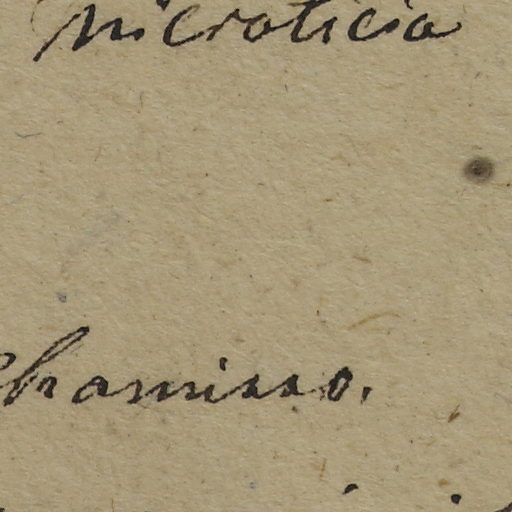 microticia
Chamisso.